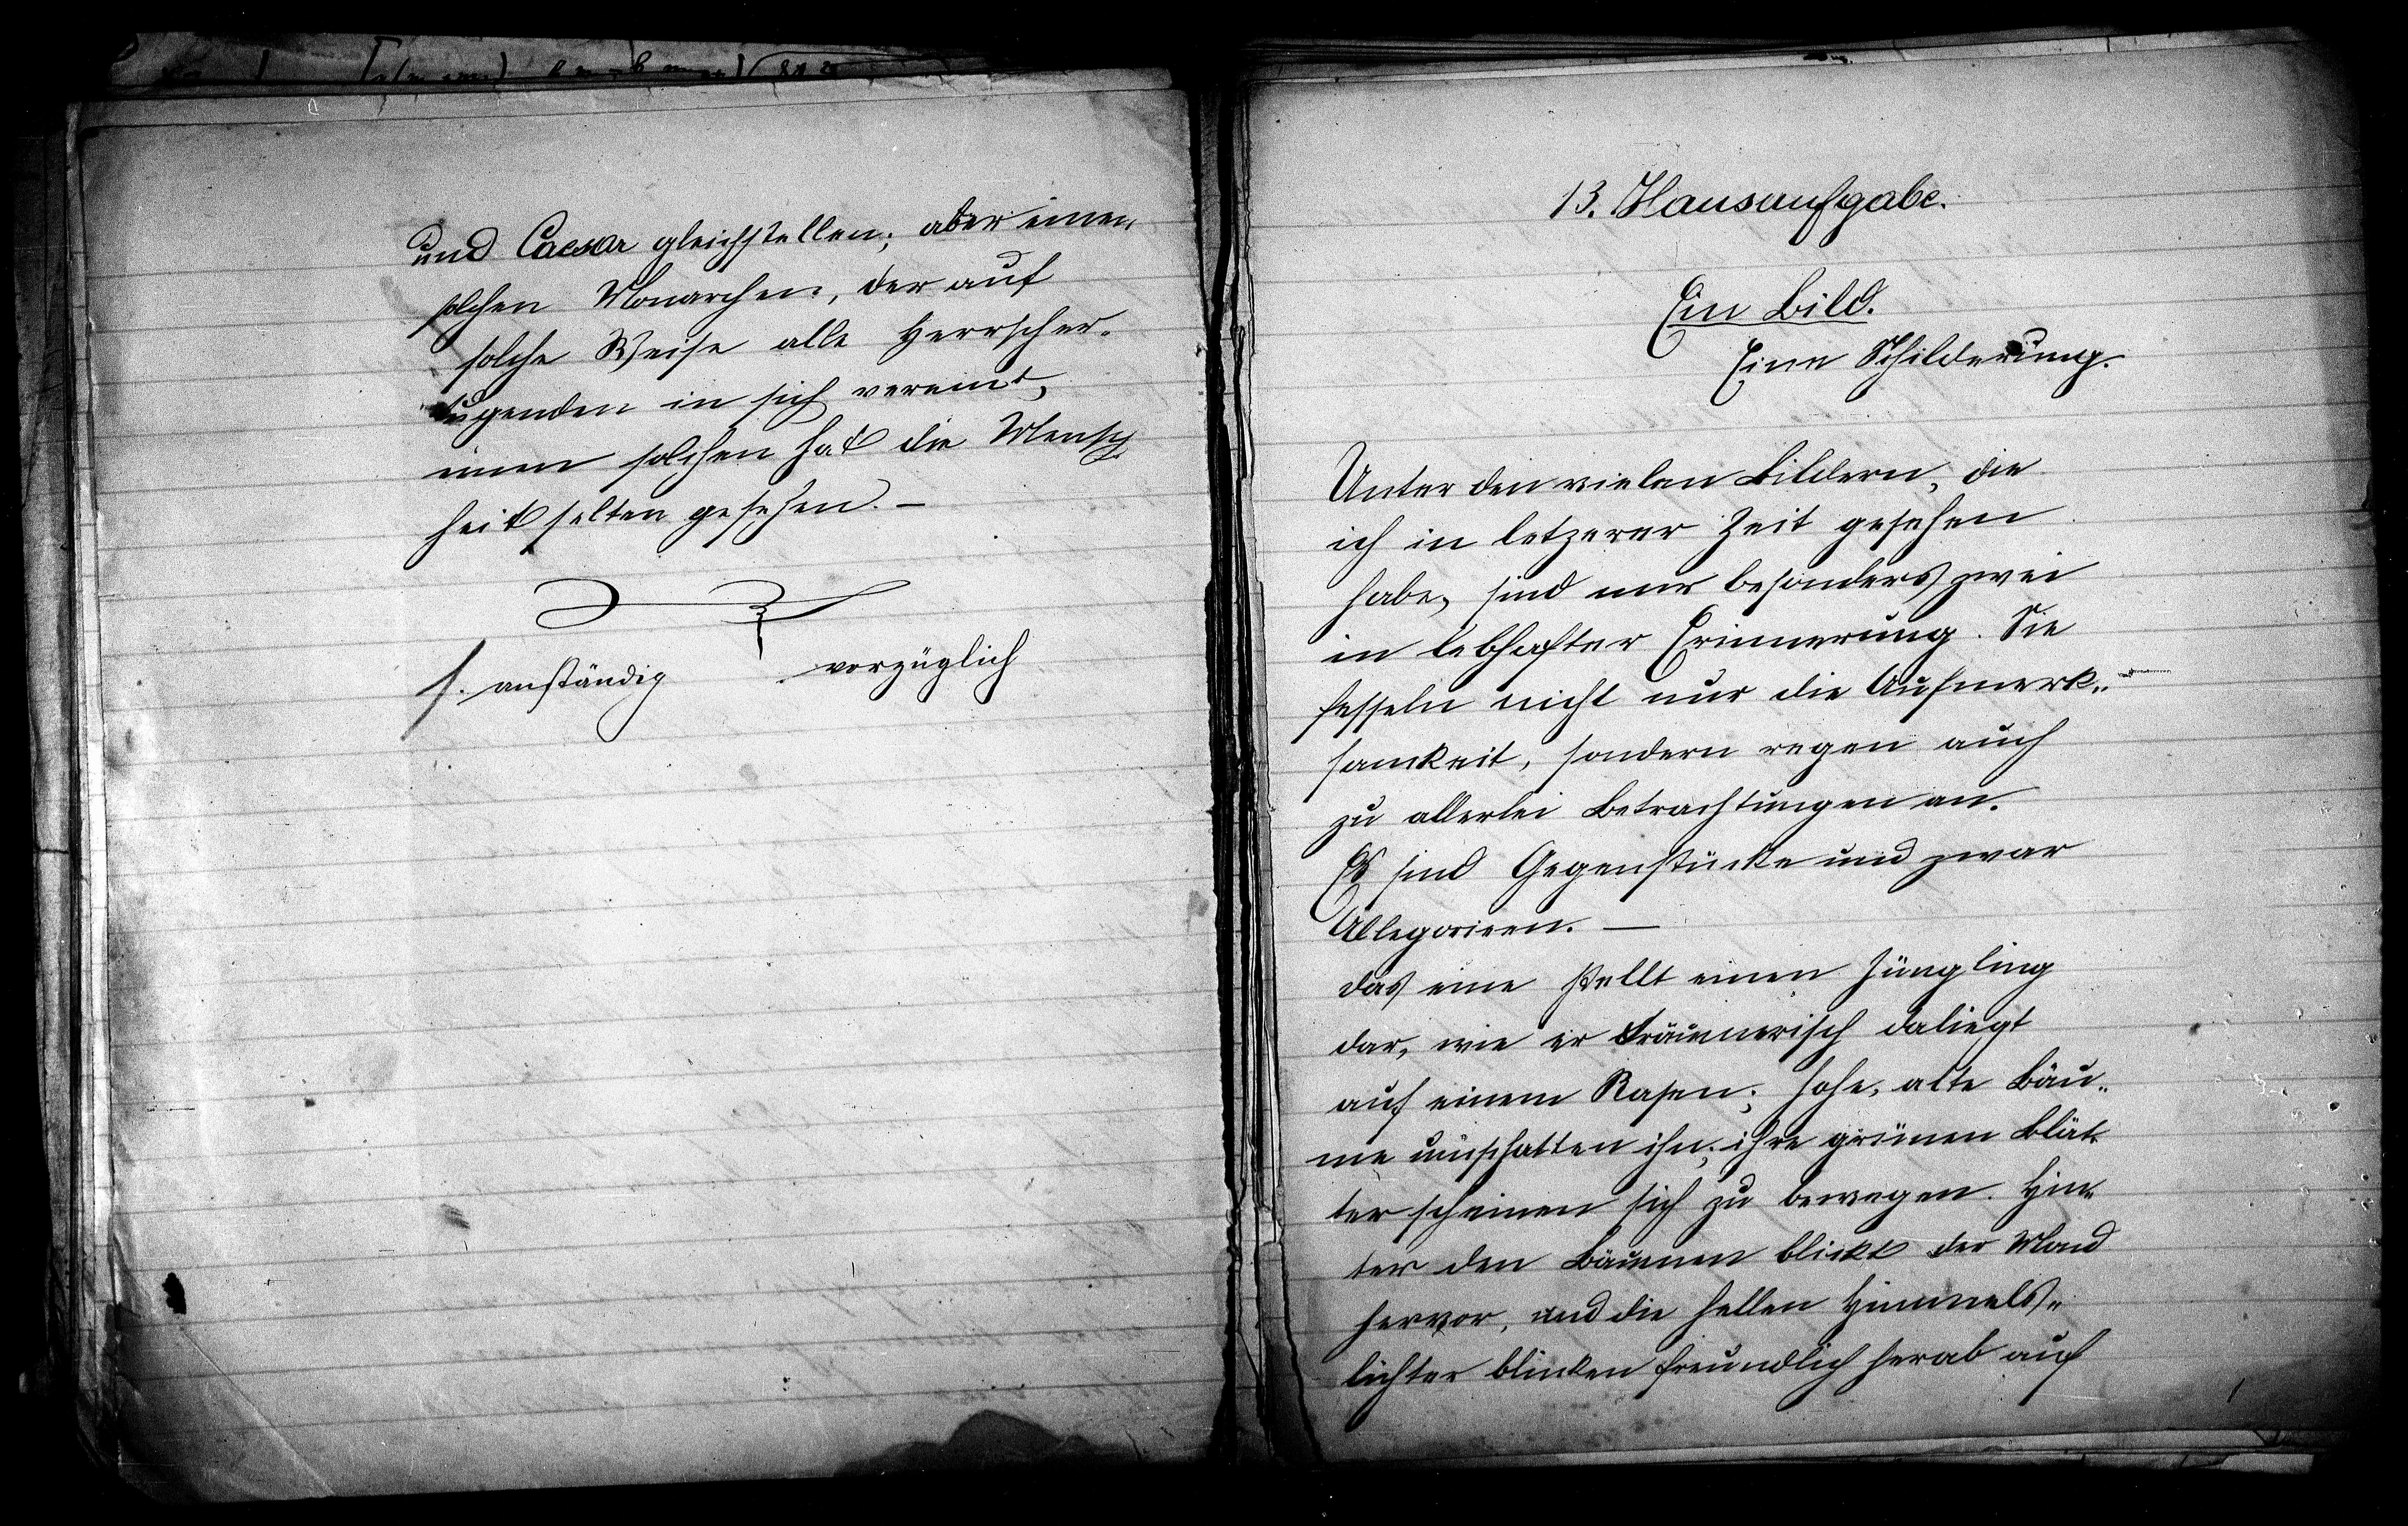 und Caesar gleichstellen; aber einen
solchen Monarchen, der auf
solche Weise alle Herrscher-
tugenden in sich vereint,
einen solchen hat die Mensch
heit selten gesehen. –
f. anständig vorzüglich
13. Hausaufgabe.
Ein Bild.
Eine Schilderung.
Unter den vielen Bildern, die
ich in letzerer Zeit gesehen
habe, sind mir besonders zwei
in lebhafter Erinnerung. Sie
fesseln nicht nur die Aufmerk„
samkeit, sondern regen auch
zu allerlei Betrachtungen an.
Es sind Gegenstücke und zwar
Allegorieen. —
Das eine stellt einen Jüngling
dar, wie er träumerisch daliegt
auf einem Rasen; hohe, alte Bäu„
me umschatten ihn; ihre grünen Blät„
ter scheinen sich zu bewegen. Hin„
ter den Bäumen blickt der Mond
hervor, und die hellen Himmels„
lichter blinken freundlich herab auf